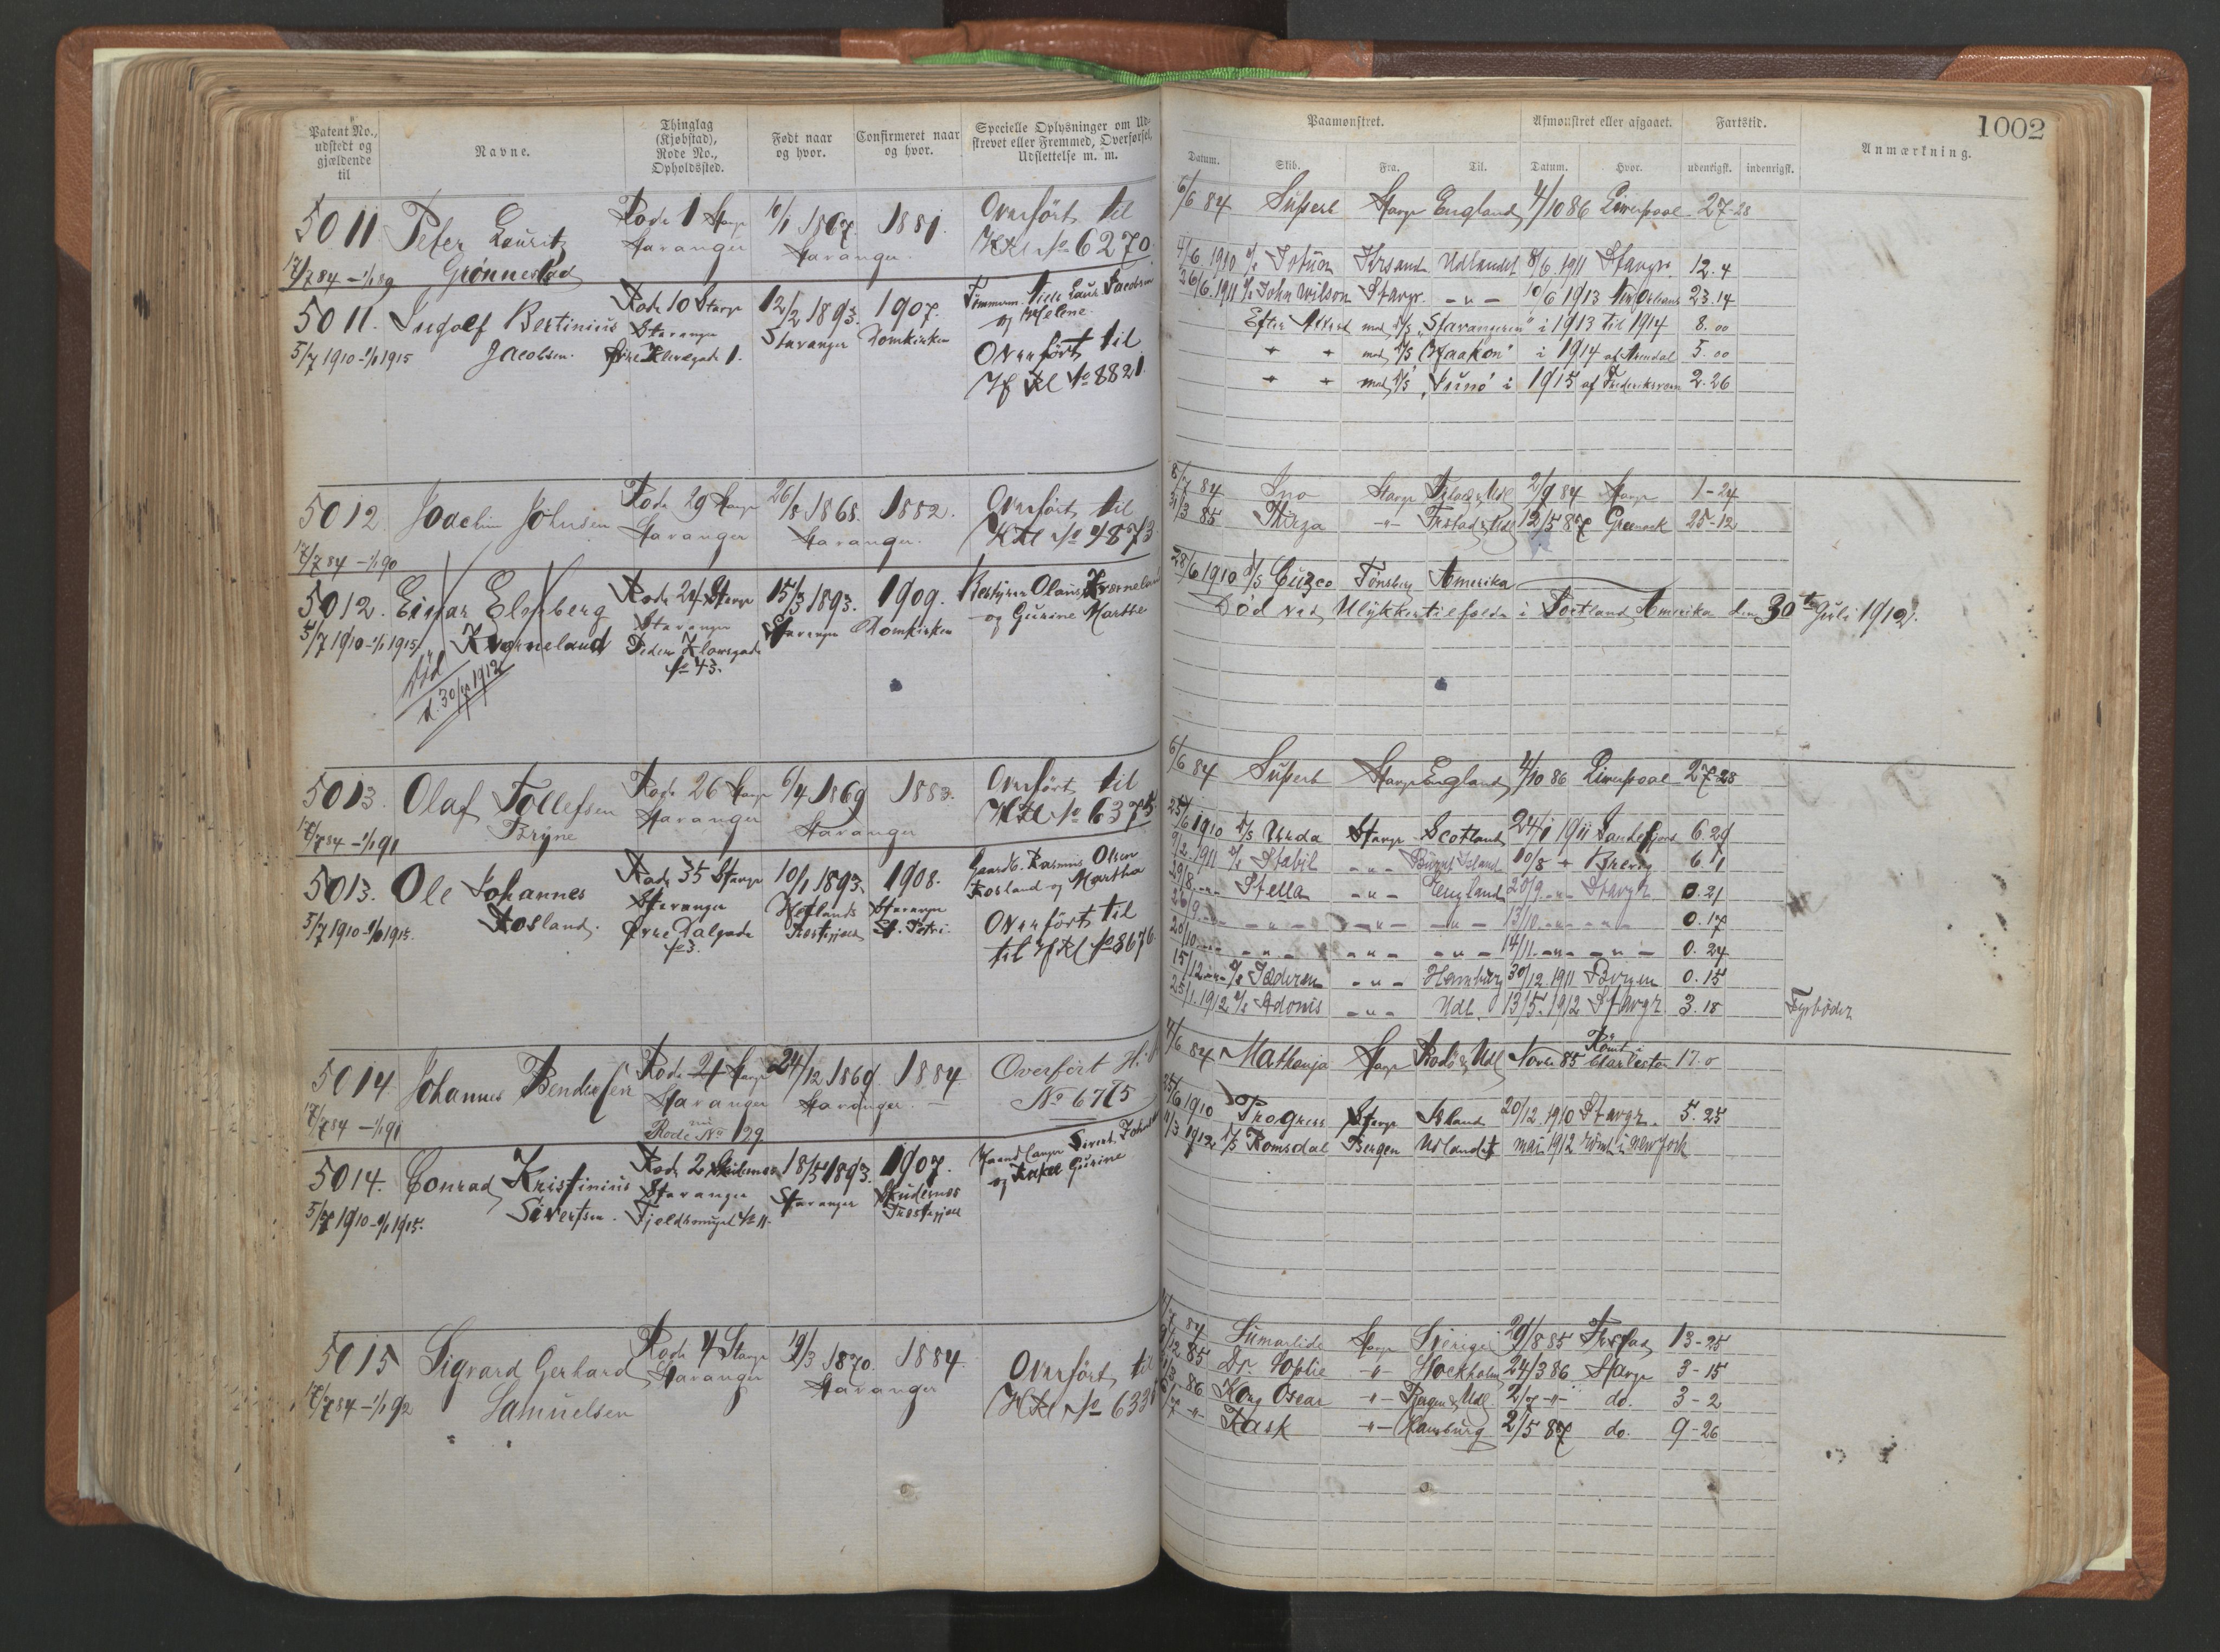 1002
Patent No., udstedt og gjældende til
Navne.
Thinglag (Kjøbstad), Rode No., Opholdssted.
Født naar og hvor.
Confirmeret naar og hvor.
Specielle Oplysninger om Udskrevet eller Fremmed, Overførsel, Udslettelse m. m.
Paamønstret.
Afmønstret eller afgaaet.
Fartstid.
Anmærkning.
Datum. Skib. Fra. Til. Datum. Hvor. udenrigsk. indenrigsk.
5011 Peter Lauritz Rode 1 Stavgr 10/1 1867. 1881. Overført til
Grønnestad Stavanger Stavanger. No 6270.
17/7 84 – 1/1 89
6/6 84 Superb Stavgr England 4/10 86 Liverpool 27-28
5011. Ingolf Bertinius Rode 10 Stavgr 12/2 1893. 1907. Tømmerm. Niels Laur. Jacobsen
5/7 1910-1/1 1915 Jacobsen. Stavanger Stavanger Domkirken og Helene.
Øvre Klevegade 1. Overført til
No 8821.
4/6 1910 Krsand Udlandet 8/6 1911 Stavgr. 12.4
26/6 1911 John Wilson Stavgr. – " – 10/6 1913 New Orleans 23.14
Efter Attest med D/S "Stavangeren" i 1913 til 1914 8.00
med D/S "Haakon" i 1914 af Arendal 5.00
med D/S "Juno" i 1915 af Frederiksværn 2.26
5012 Joachim Johnsen Rode 29 Stavgr 26/8 1868. 1882. Overført til
17/7 84 – 1/1 90 Stavanger Stavanger. No 4873
8/7 84 Ino Stavgr 2/9 84 Stavgr 1-24
31/3 85 Thirza – " – 12/5 87 Greenock 25-12
5012. Einar Elseberg Rode 24 Stavgr 15/3 1893. 1909. Bestyrer Olaus Kverneland
5/7 1910-1/1 1915 Kverneland Stavanger Stavanger Domkirken og Gurine Marthe
Pedersgade
No 43.
Død
d. 30/7 1912
28/6 1910 D/S Cuzco Tønsberg Amerika
Død ved Ulykkestilfælde i Portland Amerika den 30te Juli 1912.
5013. Olaf Tollefsen Rode 26 Stavgr 6/4 1869 1883. Overført til
17/7 84 – 1/1 91 Bryne Stavanger Stavanger No 6375
6/6 84 Superb Stavgr England 4/10 86 Liverpool 27-28
5013. Ole Johannes Rode 35 Stavgr 10/1 1893. 1908. Gaardb. Rasmus Olsen
5/7 1910-1/1 1915. Rosland. Stavanger Hetlands Stavanger Rosland og Martha
Øvre Dalgade Præstegjeld St. Petri. Overført til
No 3. til No 8676
25/6 1910 D/S Urda Stavgr Scotland 24/1 1911 Sandefjord 6.29
9/2 1911 Stabil – " – 10/8 Brevig 6.1
29/8 – " – Stella – " – England 20/9 – " – Stavgr. 0.21
26/9 – " – – " – – " – – " – 13/10 – " – – " – 0.17
20/10 – " – – " – – " – – " – 14/11 – " – – " – 0.24
15/12 – " – Jæderen – " – Hamburg 30/12 1911 Bergen 0.15
25/1 1912 Adonis – " – Udl. 13/5 1912 Stavgr. 3.18 Fyrbøder
5014. Johannes Bendiksen Rode 21 Stavgr 24/12 1869. 1884. Overført
17/7 84 – 1/1 91 Stavanger Stavanger. No 6775
Rode No 29
4/6 84 Nathanja Stavgr Novbr 85 Rømt i Charleston 17.0
5014. Conrad Kristinius Rode 2 Skudesnes 18/5 1893. 1907. Sivert
5/7 1910-1/1 1915. Sivertsen. Stavanger Stavanger Skudesnes og Rakel Gurine
Fjeldsmuget No 11. Præstegjeld
25/6 1910 Progress Stavgr Island 20/12 1910 Stavgr. 5.25
11/3 1912 D/S Romsdal Bergen Udlandet mai 1912 rømt i New York
5015 Sigvard Gerhard Rode 4 Stavgr 19/3 1870. 1884. Overført til
17/7 84 – 1/1 92 Samuelsen Stavanger Stavanger
84 Sumarlide Stavgr Sverige 29/8 85 13-25
9/12 85 Dr. Sophie – " – Stockholm 24/3 86 Stavgr 3-15
86 Kong Oscar – " – Bergen & Udl. 2/7 – " – do. 3-2
– " – Rask – " – Hamburg 2/5 87 do. 9-26